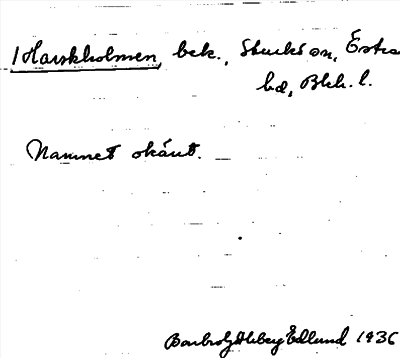 1 Harskholmen, bek., Sturkö sn, Östra
hd, Blek. l.
Namnet okänt.
Edlund 1936